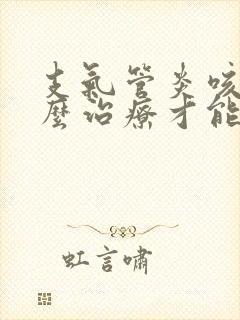 支氣管炎咳
麼治療才能
虹言嘯